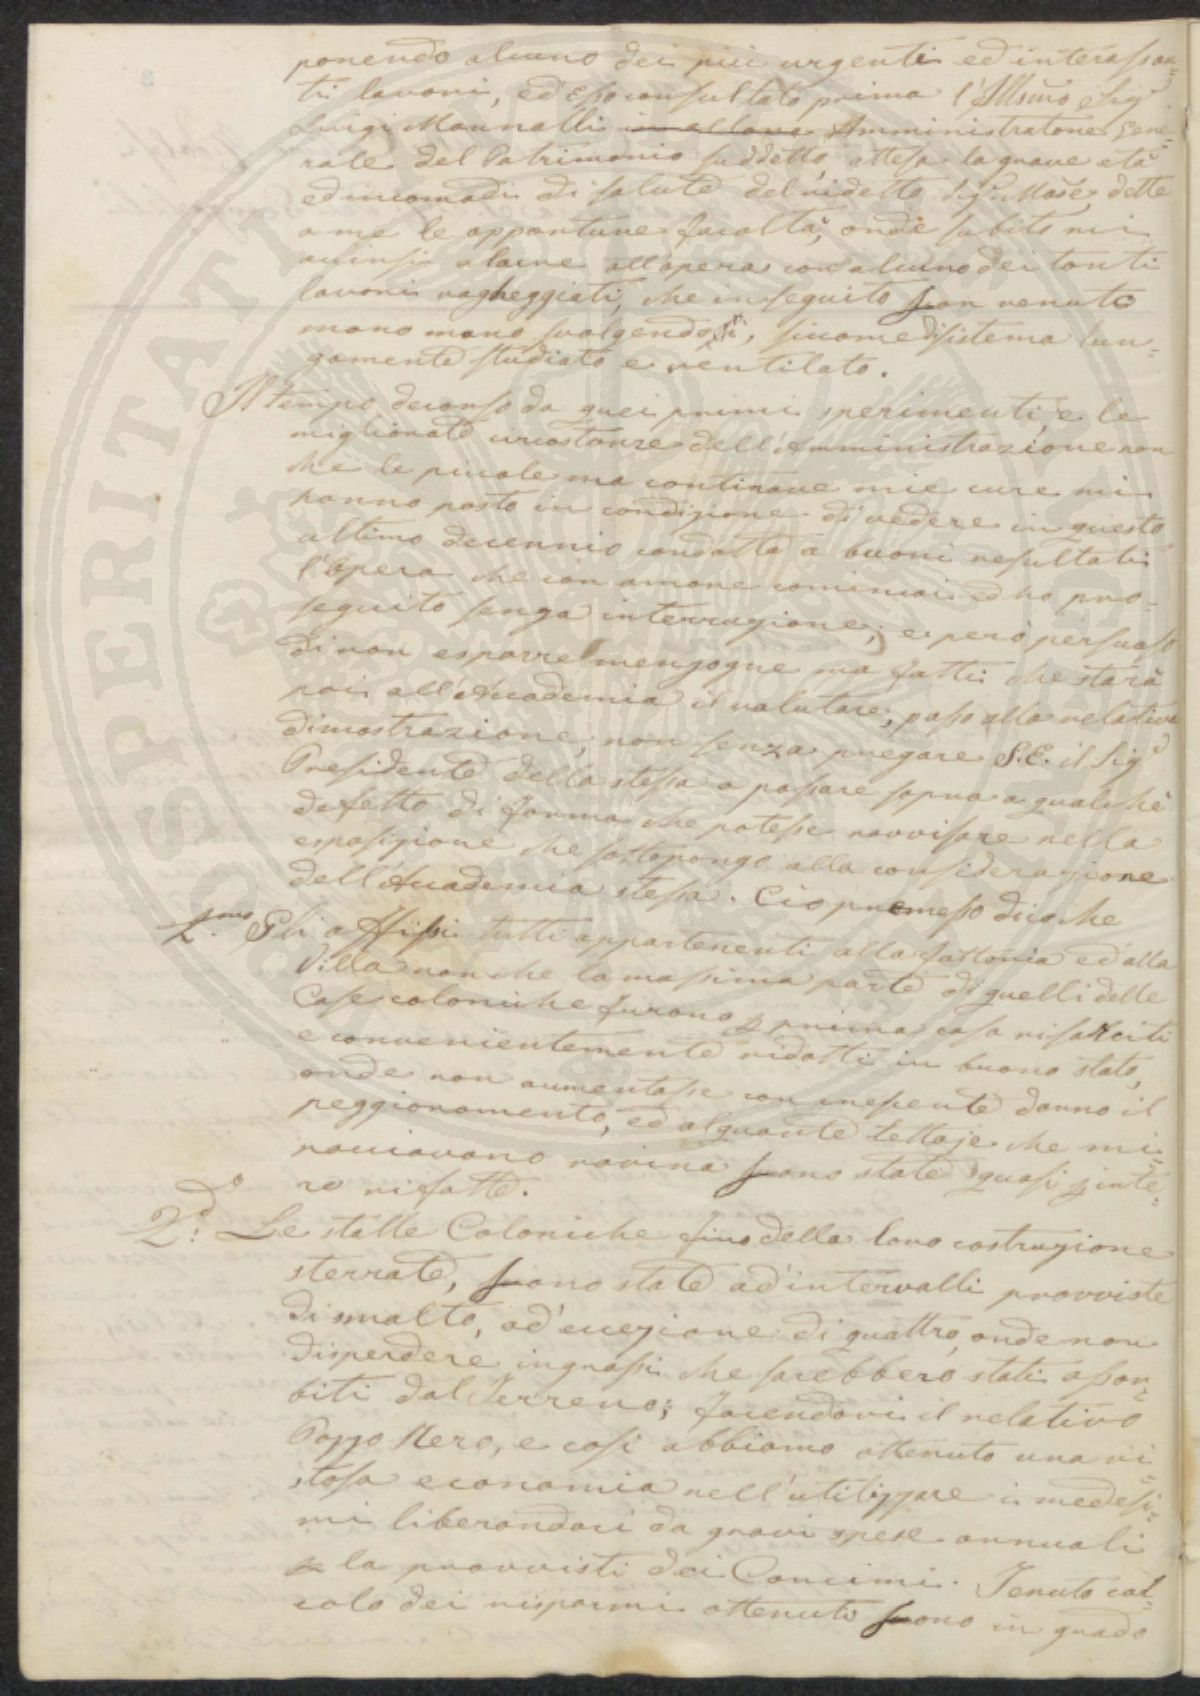 ponendo alcuno dei più urgenti ed interessan=
ti lavori, ed Esso consultato prima l'Illmo Sigr
Luigi Mannalli in allora Amministratore Gene=
rale del Patrimonio suddetto, attesa la grave età
ed incomodi di salute del ridetto Sigr Mse, dette
a me le opportune facoltà; onde subito mi
accinsi alacre all'opera con alcuno dei tanti
lavori vagheggiati, che in seguito son venuti
mano mano svolgendosi, siccome di sistema lun=
gamente studiato e ventilato.
Il tempo decorso da quei primi sperimenti, e le
migliorate circostanze dell'Amministrazione non
che le piccole ma continove mie cure mi
hanno posto in condizione di vedere in questo
ultimo decennio condotta a buoni resultati
l'Opera che con amore cominciai ed ho pro=
seguito senza interruzione; e però persuaso
di non esporre menzogne ma fatti che starà
poi all'Accademia il valutare, passo alla relativa
dimostrazione; non senza pregare S.E. il Sigr
Presidente della stessa a passare sopra a qualche
defetto di forma che potesse ravvisare nella
esposizione che sottopongo alla considerazione
dell'Accademia stessa. Ciò premesso dico che
1.mo Gli affissi tutti appartenenti alla fattoria ed alla
Villa non che la massima parte di quelli delle
Case coloniche furono p prima cosa risarciti
e convenientemente ridotti in buono stato,
onde non aumentasse con crescente danno il
peggioramento, ed alquante tettoje che mi=
nacciavano rovina sono state quasi p inte=
ro rifatte.
2.do Le stalle Coloniche fino della loro costruzione
sterrate, sono state ad intervalli provviste
di smalto, ad eccezione di quattro, onde non
disperdere ingrassi che sarebbero stati assor=
biti dal Terreno; facendovi il relativo
Pozzo Nero, e così abbiamo ottenuto una vi=
stosa economia nell'utilizzare i medesi=
mi liberandoci da gravi spese annuali
p la provvisti dei Concimi. Tenuto cal=
colo dei risparmi ottenuti sono in grado